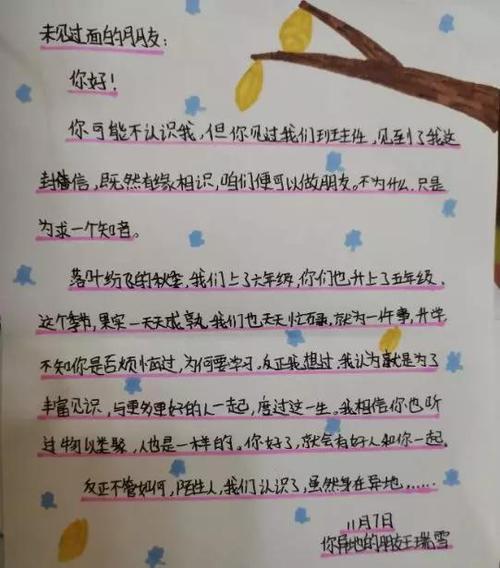 未见过面的朋友：
你好！
你可能不认识我，但你见过我们班主任，见到了我这
封信，既然有缘相识，咱们便可以做朋友。不为什么，只是
为求一个知音。
落叶纷飞的秋季，我们上了六年级，你们也升上了五年级。
这个季节，果实一天天成熟，我们也天天忙碌，就为一件事，升学
不知你是否烦恼过，为何要学习，反正我想过，我认为就是为了
丰富见识，与更多更好的人一起，度过这一生。我相信你也听
过物以类聚，人也是一样的。你好了，就会有好人和你一起。
反正不管如何，陌生人，我们认识了，虽然身在异地，……
11月7日
你异地的朋友王瑞雪